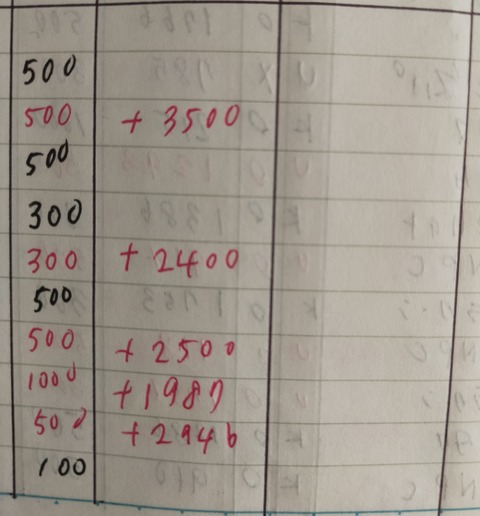 500
500 + 3500
500
300
300 + 2400
500
500 + 2500
1000
500 + 2946
100